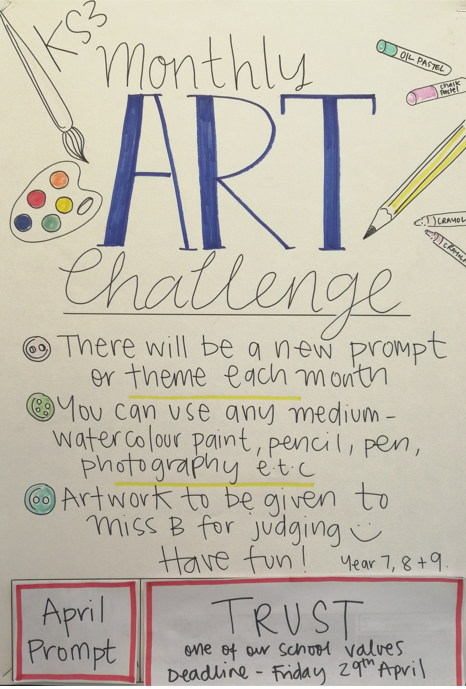 KS3
Monthly
OIL PASTEL
chalk
Pastel
ART
CRAYOL
CRAYOLA
Challenge
There will be a new prompt
or theme each month
You can use any medium-
watercolour paint, pencil, pen,
photography e.t.c
Artwork to be given to
Miss B for judging
Have fun! Year 7, 8 + 9.
April
Prompt
TRUST
one of our school values
Deadline - Friday 29th April